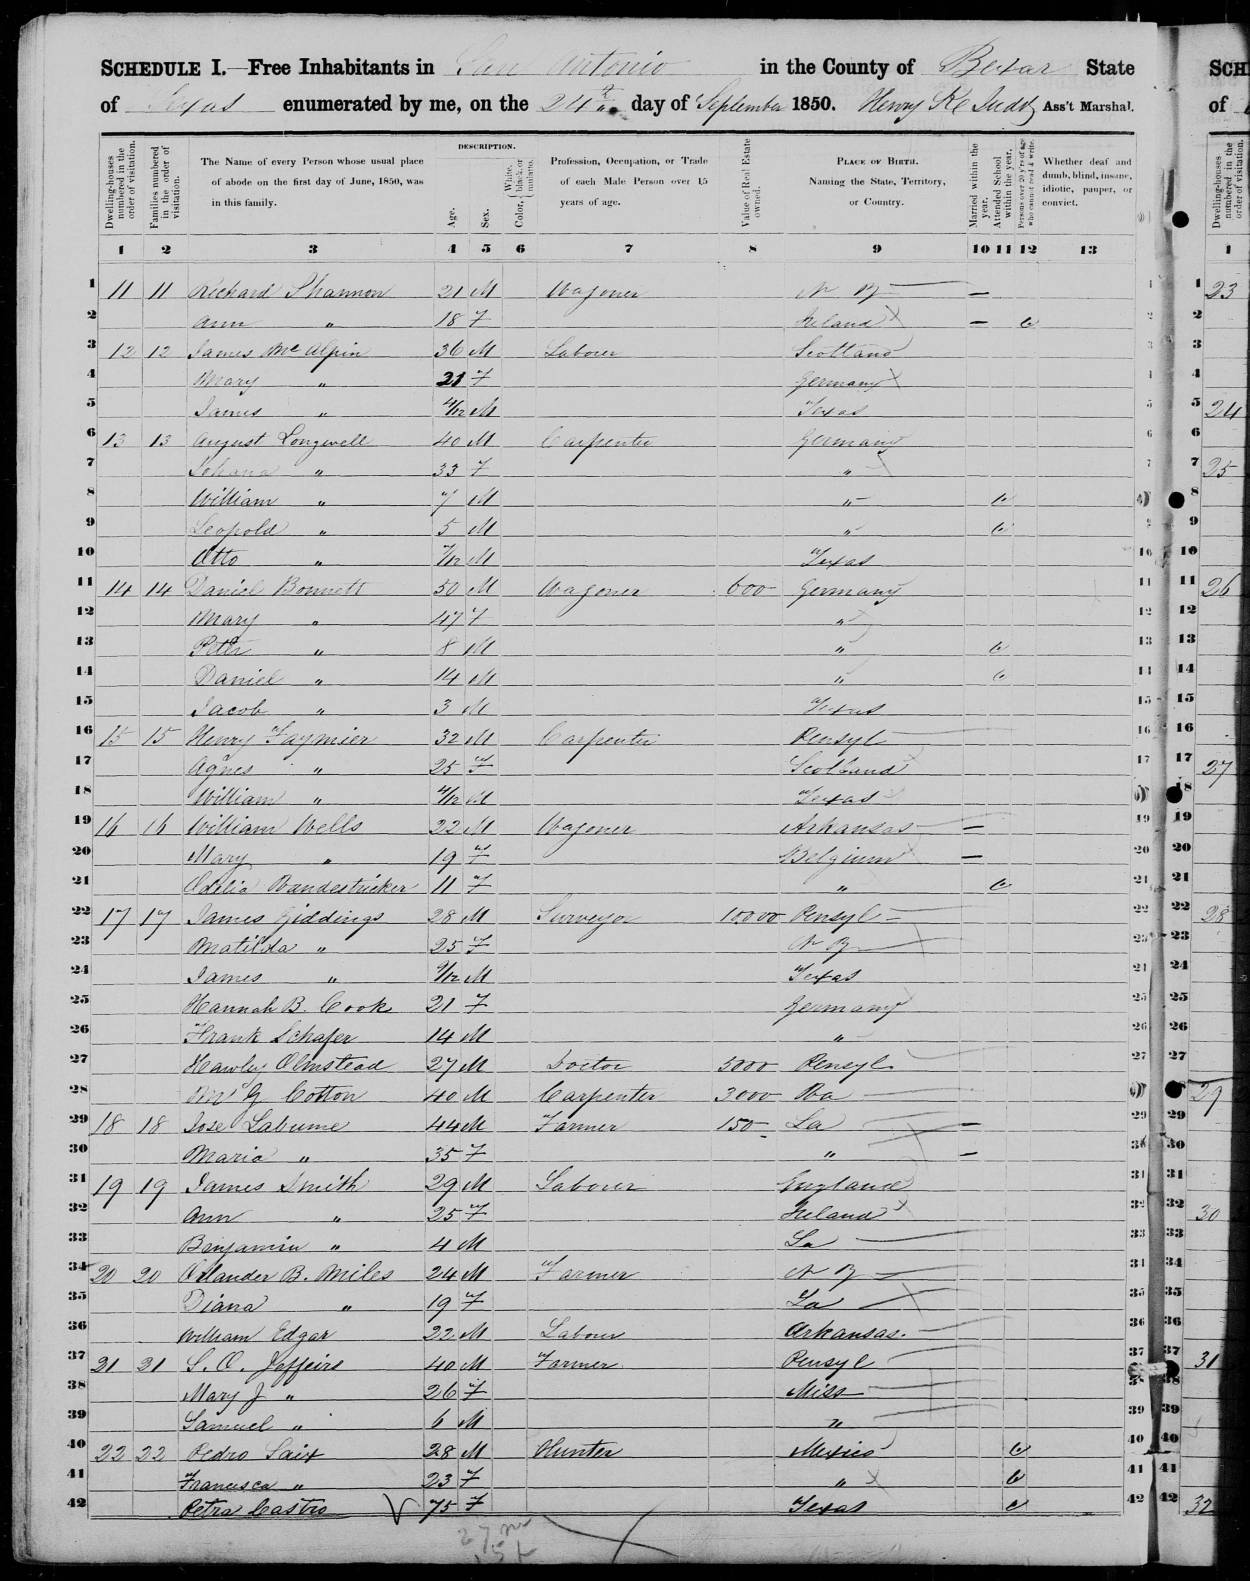 SCHEDULE I.—Free Inhabitants in San Antonio in the County of Bexar State
of Texas enumerated by me, on the 24th day of September 1850. Henry K Judd Ass't Marshal.
Dwelling-houses numbered in the order of visitation.
Families numbered in the order of visitation.
The Name of every Person whose usual place of abode on the first day of June, 1850, was in this family.
DESCRIPTION.
Age.
Sex.
Color, White, black, or mulatto.
Profession, Occupation, or Trade of each Male Person over 15 years of age.
Value of Real Estate owned.
PLACE OF BIRTH. Naming the State, Territory, or Country.
Married within the year.
Attended School within the year.
Persons over 20 y'rs of age who cannot read & write.
Whether deaf and dumb, blind, insane, idiotic, pauper, or convict.
1 2 3 4 5 6 7 8 9 10 11 12 13
1 11 11 Richard Shannon 21 M Wagoner N Y — 1
2 Ann " 18 F Ireland — 2
3 12 12 James McAlpin 36 M Laborer Scotland 3
4 Mary " 21 F Germany 4
5 James " 4/12 M Texas 5
6 13 13 August Longwell 40 M Carpenter Germany 6
7 Johana " 33 F " 7
8 William " 7 M " 8
9 Leopold " 5 M " 9
10 Otto " 7/12 M Texas 10
11 14 14 Daniel Bonnett 50 M Wagoner 600 Germany 11
12 Mary " 47 F " 12
13 Peter " 8 M " 13
14 Daniel " 14 M " 14
15 Jacob " 3 M Texas 15
16 15 15 Henry Faymier 32 M Carpenter Pensyl 16
17 Agnes " 25 F Scotland 17
18 William " 4/12 M Texas 18
19 16 16 William Wells 22 M Wagoner Arkansas — 19
20 Mary " 19 F Belgium — 20
21 Odelia Vandestricker 11 F " 21
22 17 17 James Giddings 28 M Surveyor 10000 Pensyl 22
23 Matilda " 25 F N Y 23
24 James " 9/12 M Texas 24
25 Hannah B. Cook 21 F Germany 25
26 Frank Schafer 14 M " 26
27 Hawley Olmstead 27 M Doctor 5000 Pensyl 27
28 Wm G Cotton 40 M Carpenter 3000 Va 28
29 18 18 Jose Labume 44 M Farmer 150 La — 29
30 Maria " 35 F " — 30
31 19 19 James Smith 29 M Laborer England 31
32 Ann " 25 F Ireland 32
33 Benjamin " 4 M La 33
34 20 20 Orlander B. Miles 24 M Farmer N Y 34
35 Diana " 19 F La 35
36 William Edgar 22 M Laborer Arkansas. 36
37 21 21 S. O. Joffeirs 40 M Farmer Pensyl 37
38 Mary J " 26 F Miss 38
39 Samuel " 6 M " 39
40 22 22 Pedro Saix 28 M Hunter Mexico 40
41 Francisca " 23 F " 41
42 Petra Castro 75 F Texas 42
27 m
15 f
SCHE
of
Dwelling-houses numbered in the order of visitation.
1
1 23
2
3
4
5 24
6
7 25
8
9
10
11 26
12
13
14
15
16
17 27
18
19
20
21
22 28
23
24
25
26
27
29
29
30
31
32 30
33
34
35
36
37 31
38
39
40
41
42 32